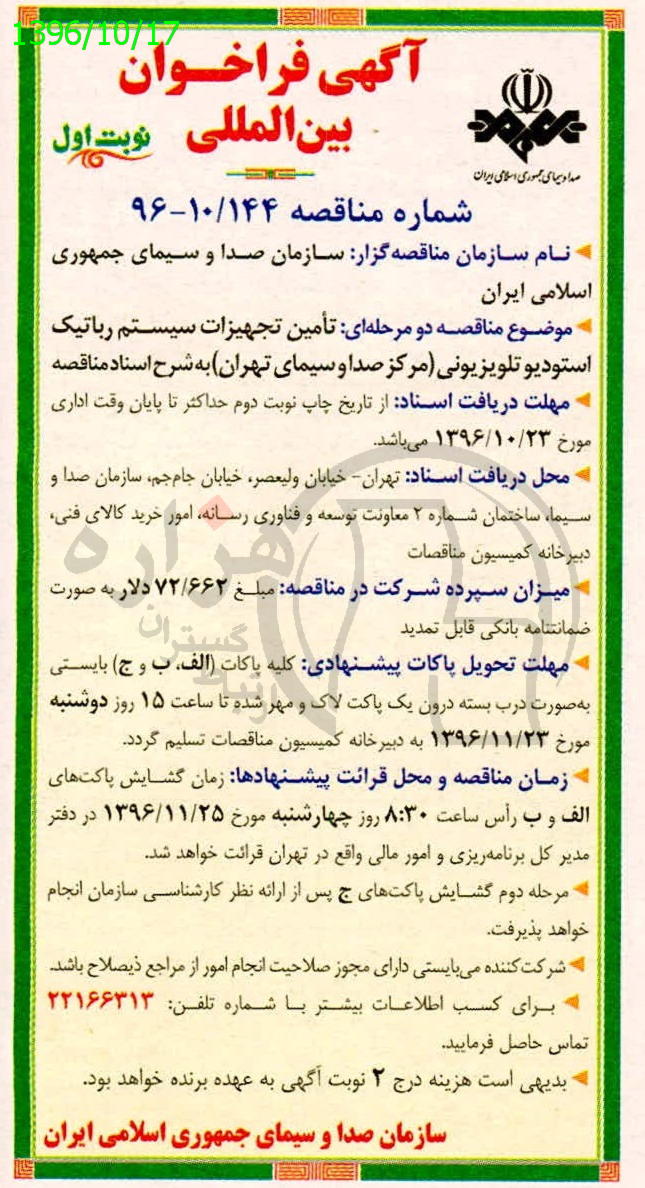 1396/10/17
آگهی فراخوان
بین‌المللی
نوبت اول
صدا و سیمای جمهوری اسلامی ایران
شماره مناقصه ۹۶-۱۰/۱۴۴
نام سازمان مناقصه‌گزار: سازمان صدا و سیمای جمهوری
اسلامی ایران
موضوع مناقصه دو مرحله‌ای: تأمین تجهیزات سیستم رباتیک
استودیو تلویزیونی (مرکز صدا و سیمای تهران) به شرح اسناد مناقصه
مهلت دریافت اسناد: از تاریخ چاپ نوبت دوم حداکثر تا پایان وقت اداری
مورخ ۱۳۹۶/۱۰/۲۳ می‌باشد.
محل دریافت اسناد: تهران- خیابان ولیعصر، خیابان جام‌جم، سازمان صدا و
سیما، ساختمان شماره ۲ معاونت توسعه و فناوری رسانه، امور خرید کالای فنی،
دبیرخانه کمیسیون مناقصات
میزان سپرده شرکت در مناقصه: مبلغ ۷۲/۶۶۲ دلار به صورت
ضمانتنامه بانکی قابل تمدید
مهلت تحویل پاکات پیشنهادی: کلیه پاکات (الف، ب و ج) بایستی
به‌صورت درب بسته درون یک پاکت لاک و مهر شده تا ساعت ۱۵ روز دوشنبه
مورخ ۱۳۹۶/۱۱/۲۳ به دبیرخانه کمیسیون مناقصات تسلیم گردد.
زمان مناقصه و محل قرائت پیشنهادها: زمان گشایش پاکت‌های
الف و ب رأس ساعت ۸:۳۰ روز چهارشنبه مورخ ۱۳۹۶/۱۱/۲۵ در دفتر
مدیر کل برنامه‌ریزی و امور مالی واقع در تهران قرائت خواهد شد.
مرحله دوم گشایش پاکت‌های ج پس از ارائه نظر کارشناسی سازمان انجام
خواهد پذیرفت.
شرکت‌کننده می‌بایستی دارای مجوز صلاحیت انجام امور از مراجع ذیصلاح باشد.
برای کسب اطلاعات بیشتر با شماره تلفن: ۲۲۱۶۶۳۱۳
تماس حاصل فرمایید.
بدیهی است هزینه درج ۲ نوبت آگهی به عهده برنده خواهد بود.
سازمان صدا و سیمای جمهوری اسلامی ایران
هزاره
گستران